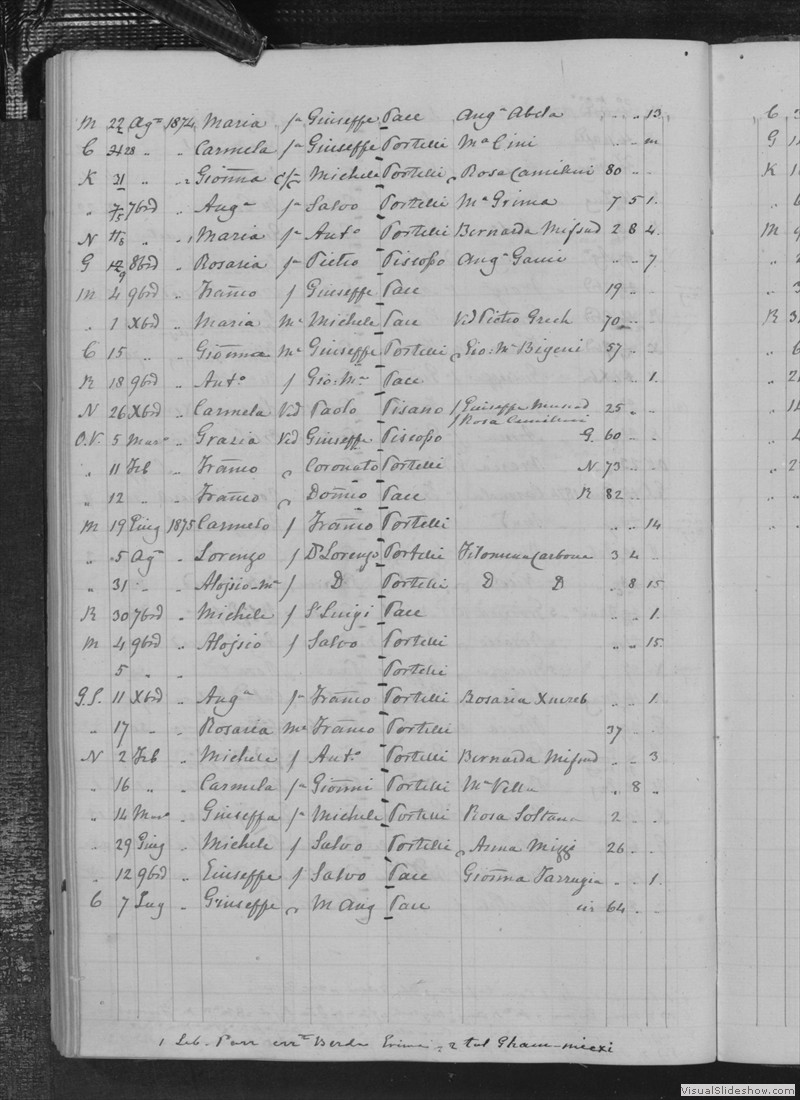 M 22 Agº 1874 Maria fª Giuseppe Pace Angª Abela .. .. 13
C 28 .. .. Carmela fª Giuseppe Portelli Mª Cini .. .. m
K 31 .. .. Gioñna Michele Portelli Rosa Camilleri 80 .. ..
.. 7bre .. Angª fª Salvo Portelli Mª Grima 7 5 1
N .. .. Maria fª Antº Portelli Bernarda Mifsud 2 8 4
G 8bre .. Rosaria fª Pietro Piscopo Angª Gauci .. .. 7
M 4 9bre .. Frañco f Giuseppe Pace 19 .. ..
.. 1 Xbre .. Maria Mª Michele Pace Vid Pietro Grech 70 .. ..
C 15 .. .. Gioñna Mª Giuseppe Portelli Gio: Mª Bigeni 57 .. ..
R 18 9bre .. Antº f Gio: Mª Pace .. .. 1
N 26 Xbre .. Carmela Vid Paolo Pisano f Giuseppe Muscad 25 .. ..
f Rosa Camilleri
O.V. 5 Marº .. Grazia Vid Giuseppe Piscopo G. 60 .. ..
.. 11 Feb .. Frañco Coronato Portelli N 73 .. ..
.. 12 .. .. Frañco Domco Pace R 82 .. ..
M 19 Giug 1875 Carmelo f Frañco Portelli .. .. 14
.. 5 Agº .. Lorenzo f Dr Lorenzo Portelli Filomena Carbone 3 4 ..
.. 31 .. .. Alojsio-Mª f D Portelli D D .. 8 15
R 30 7bre .. Michele f Sr Luigi Pace .. .. 1
M 4 9bre .. Alojsio f Salvo Portelli .. .. 15
5 .. .. Portelli
G.S. 11 Xbre .. Angª fª Frañco Portelli Rosaria Xuereb .. .. 1
.. 17 .. .. Rosaria Mª Frañco Portelli 37 .. ..
N 2 Feb .. Michele f Antº Portelli Bernarda Mifsud .. .. 3
.. 16 .. .. Carmela fª Gioñni Portelli Mª Vella .. 8 ..
.. 14 Marº .. Giuseppa fª Michele Portelli Rosa Soltana 2 .. ..
.. 29 Giug .. Michele f Salvo Portelli Anna Mizzi 26 .. ..
.. 12 9bre .. Giuseppe f Salvo Pace Gioñna Farrugia .. .. 1
C 7 Lug .. Giuseppe M Ang Pace 64 .. ..
1 Seb. Parr Berda 2 tal Gham-miexi
C
G
K
M
R
VisualSlideshow.com